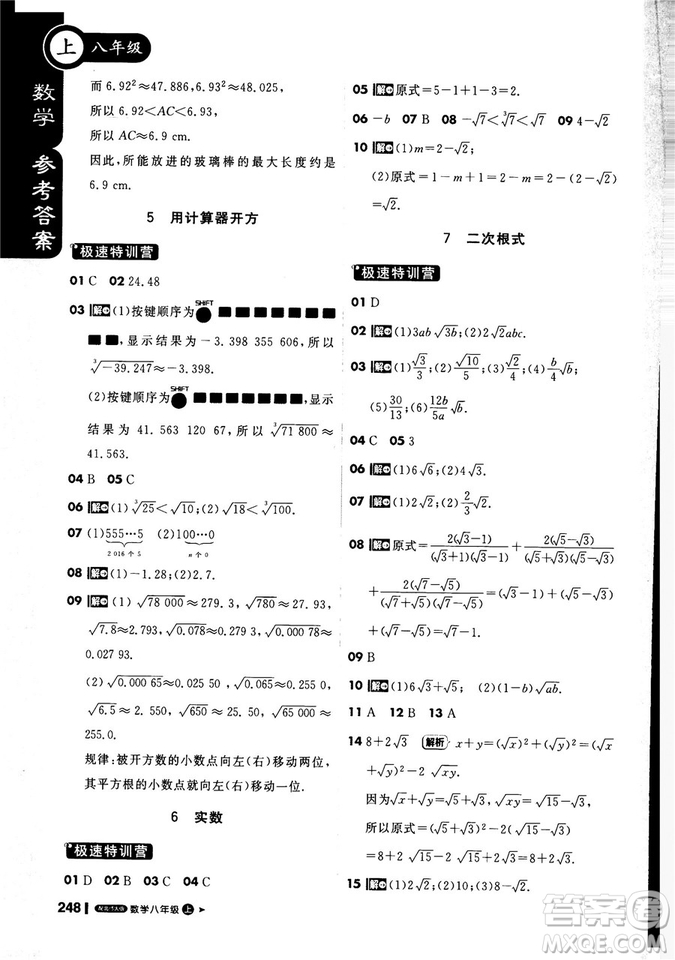 上 八年级
数学 参考答案
而 6.92²≈47.886,6.93²≈48.025,
所以 6.92<AC<6.93,
所以 AC≈6.9 cm.
因此,所能放进的玻璃棒的最大长度约是
6.9 cm.
5 用计算器开方
极速特训营
01 C 02 24.48
03 解 (1)按键顺序为 SHIFT ● ■ ■ ■ ■ ■ ■ ■ ■
■ ■,显示结果为-3.398 355 606,所以
∛-39.247≈-3.398.
(2)按键顺序为 SHIFT ● ■ ■ ■ ■ ■ ■ ■,显示
结果为 41.563 120 67,所以 ∛71 800≈
41.563.
04 B 05 C
06 解 (1)∛25<√10;(2)√18<∛100.
07 (1)555…5 (2)100…0
2 016 个 5 n 个 0
08 解 (1)-1.28;(2)2.7.
09 解 (1) √78 000≈279.3,√780≈27.93,
√7.8≈2.793,√0.078≈0.279 3,√0.000 78≈
0.027 93.
(2) √0.000 65≈0.025 50,√0.065≈0.255 0,
√6.5≈2.550,√650≈25.50,√65 000≈
255.0.
规律:被开方数的小数点向左(右)移动两位,
其平方根的小数点就向左(右)移动一位.
6 实数
极速特训营
01 D 02 B 03 C 04 C
248 数学八年级 上
05 解 原式=5-1+1-3=2.
06 -b 07 B 08 -√7<∛7<√7 09 4
10 解 (1)m=2-√2;
(2)原式=|2-√2-1|+|2-√2-2|=
√2.
7 二次根式
极速特训营
01 D
02 解 (1)3ab√3b;(2)2√2abc.
03 解 (1)√3/3;(2)√10/5;(3)√2/4;(4)b/4√b.
(5)30/13;(6)12b/5a√b.
04 C 05 3
06 解 (1)6√6;(2)4√3.
07 解 (1)6√2;(2)2/3√3.
08 解 原式=2(√3-1)/(√3+1)(√3-1)+2(√5-√3)/(√5+√3)(√5-√3)
+2(√7-√5)/(√7+√5)(√7-√5)=(√3-1)+(√5-√3)
+(√7-√5)=√7-1.
09 B
10 解 (1)6√3+√15; (2)-ab√ab.
11 A 12 B 13 A
14 8+2√3 解析 x+y=(√x)²+(√y)²=(√x+
√y)²-2√xy.
因为√x+√y=√5+√3,√xy=√15-√3,
所以原式=(√5+√3)²-2(√15-√3)=
8+2√15-2√15+2√3=8+2√3.
15 解 (1)4-√15;
作业精灵
MXQE.COM